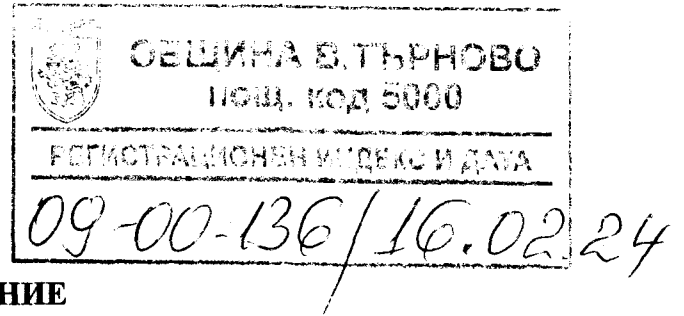 ОБЩИНА В. ТЪРНОВО
ПОЩ. КОД 5000
РЕГИСТРАЦИОНЕН ИНДЕКС И ДАТА
09-00-136/16.02.24
НИЕ